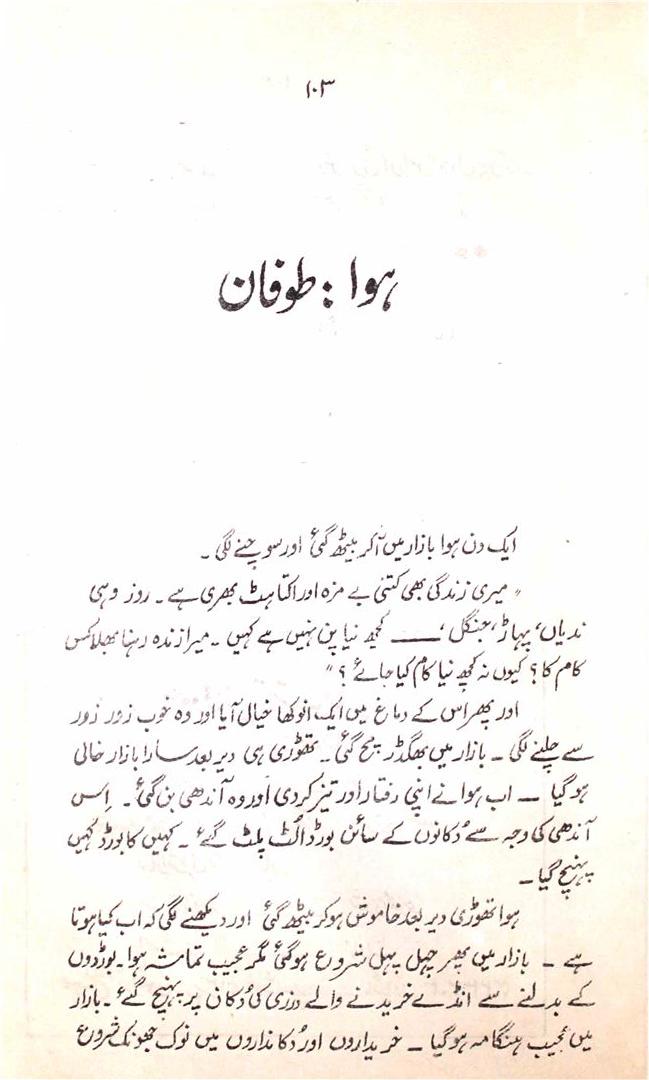 ۱۰۳
ہوا : طوفان
ایک دن ہوا بازار میں آکر بیٹھ گئی اور سوچنے لگی ۔
" میری زندگی بھی کتنی بے مزہ اور اکتاہٹ بھری ہے ۔ روز وہی
ندیاں، پہاڑ، جنگل ، ــــ کچھ نیا پن نہیں ہے کہیں ۔ میرا زندہ رہنا بھلا کس
کام کا ؟ کیوں نہ کچھ نیا کام کیا جائے ؟ "
اور پھر اس کے دماغ میں ایک انوکھا خیال آیا اور وہ خوب زور زور
سے چلنے لگی ۔ بازار میں بھگدڑ مچ گئی ۔ تھوڑی ہی دیر بعد سارا بازار خالی
ہوگیا ـــ اب ہوا نے اپنی رفتار اور تیز کردی اور وہ آندھی بن گئی ۔ اِس
آندھی کی وجہ سے دُکانوں کے سائن بورڈ اُلٹ پلٹ گئے ۔ کہیں کا بورڈ کہیں
پہنچ گیا ۔
ہوا تھوڑی دیر بعد خاموش ہوکر بیٹھ گئی اور دیکھنے لگی کہ اب کیا ہوتا
ہے ۔ بازار میں پھر چہل پہل شروع ہوگئی مگر عجیب تماشہ ہوا ۔ بورڈوں
کے بدلنے سے انڈے خریدنے والے درزی کی دُکان پر پہنچ گئے ۔ بازار
میں عجیب ہنگامہ ہوگیا ۔ خریداروں اور دُکانداروں میں نوک جھونک شروع